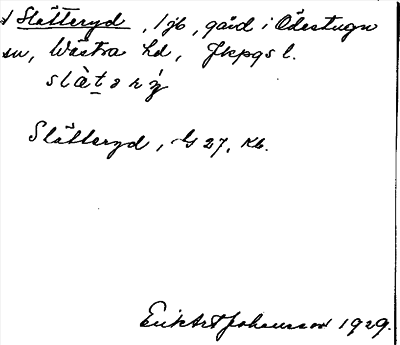 Slätteryd, 1 jb, gård i Ödestugu
sn, Västra hd, Jkpgs l.
Slätteryd, G 27, Kb.
Erik Art Johansson 1929.